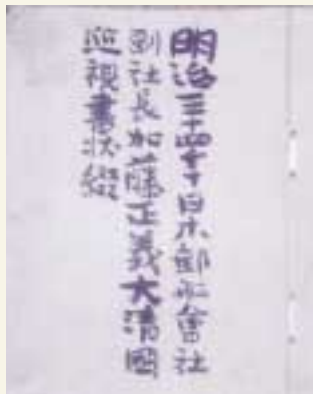 明治三十四年十月日本郵船會社
副社長加藤正義大清國
巡視書状綴